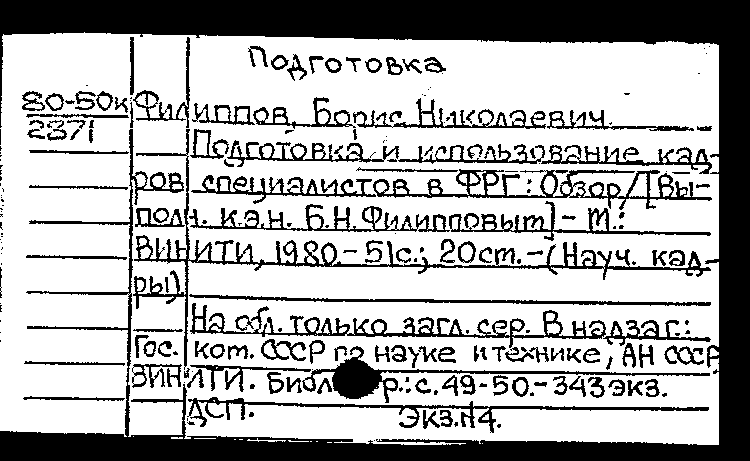 Подготовка
80-50к Филиппов, Борис Николаевич.
2371 Подготовка и использование кад-
ров специалистов в ФРГ: Обзор/[Вы-
полн. к.э.н. Б.Н.Филипповым] - М.:
ВИНИТИ, 1980.- 51с.; 20см. -(Науч. кад-
ры).
На обл. только загл. сер. В надзаг.:
Гос. ком. СССР по науке и технике, АН СССР
ВИНИТИ. р.: с. 49-50.- 343экз.
ДСП. Экз.№4.